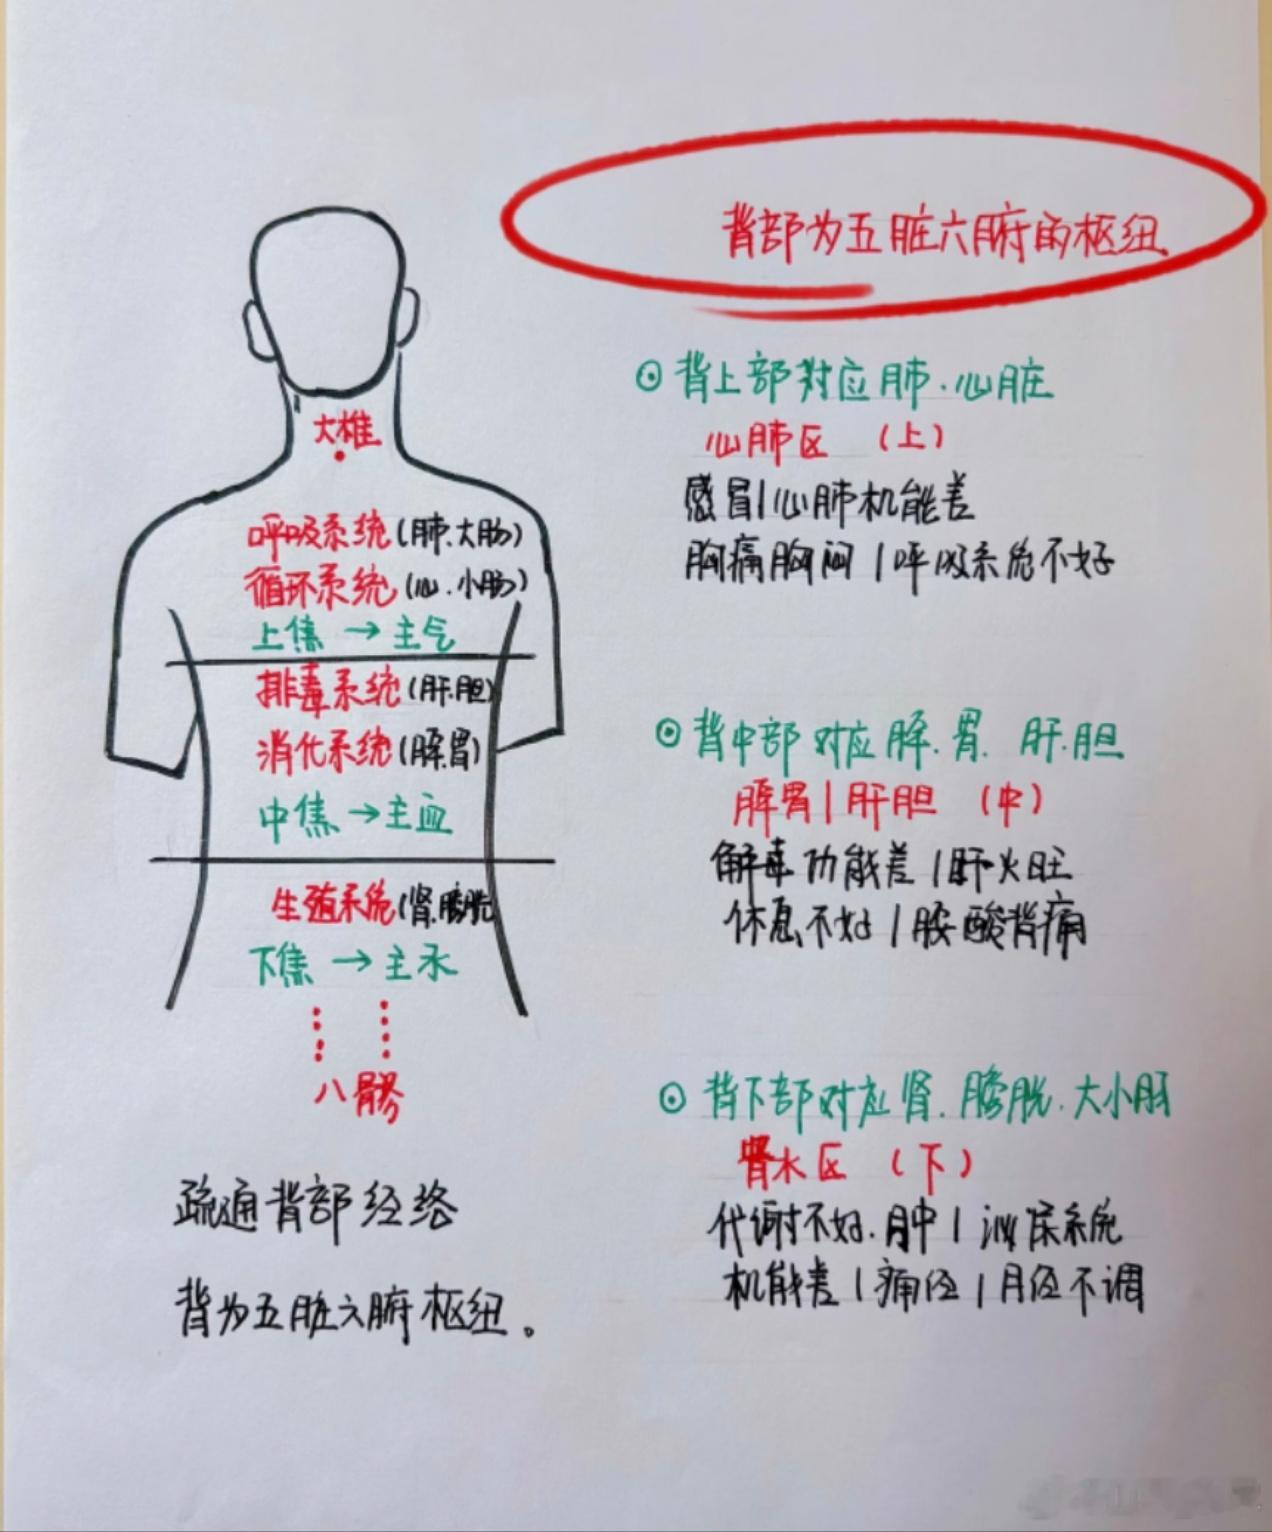 背部为五脏六腑的枢纽
大椎
呼吸系统(肺.大肠)
循环系统(心.小肠)
上焦 → 主气
排毒系统(肝.胆)
消化系统(脾.胃)
中焦 → 主血
生殖系统(肾.膀胱
下焦 → 主水
八髎
疏通背部经络
背为五脏六腑枢纽。
⊙ 背上部对应肺.心脏
心肺区 (上)
感冒|心肺机能差
胸痛胸闷|呼吸系统不好
⊙ 背中部对应脾.胃.肝.胆
脾胃|肝胆 (中)
解毒功能差|肝火旺
休息不好|腰酸背痛
⊙ 背下部对应肾.膀胱.大小肠
肾水区 (下)
代谢不好.肿|泌尿系统
机能差|痛经|月经不调